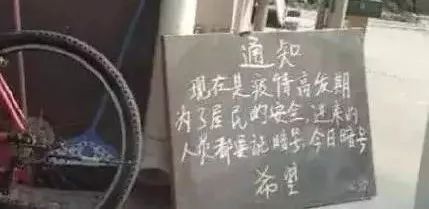 通知
现在是疫情高发期
为了居民的安全,进来的
人员都要说暗号,今日暗号
希望